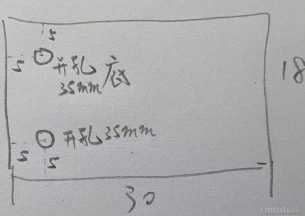 5
5
开孔
35mm
底
18
开孔35mm
5
5
30